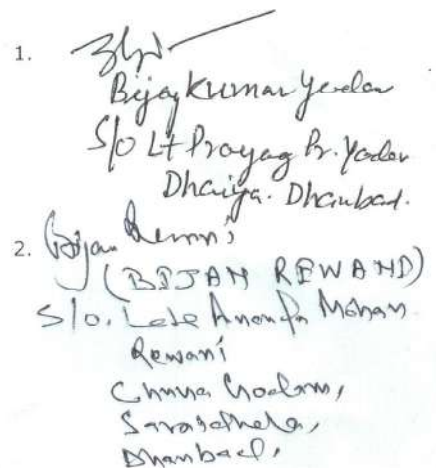 1.
Bijay Kumar Yadav
S/o Lt Prayag Pr. Yadav
Dhaiya. Dhanbad.
2. Bijan Rewani
(BIJAN REWANI)
S/o. Late Ananda Mohan
Rewani
Chuna Godam,
Saraidhela,
Dhanbad,